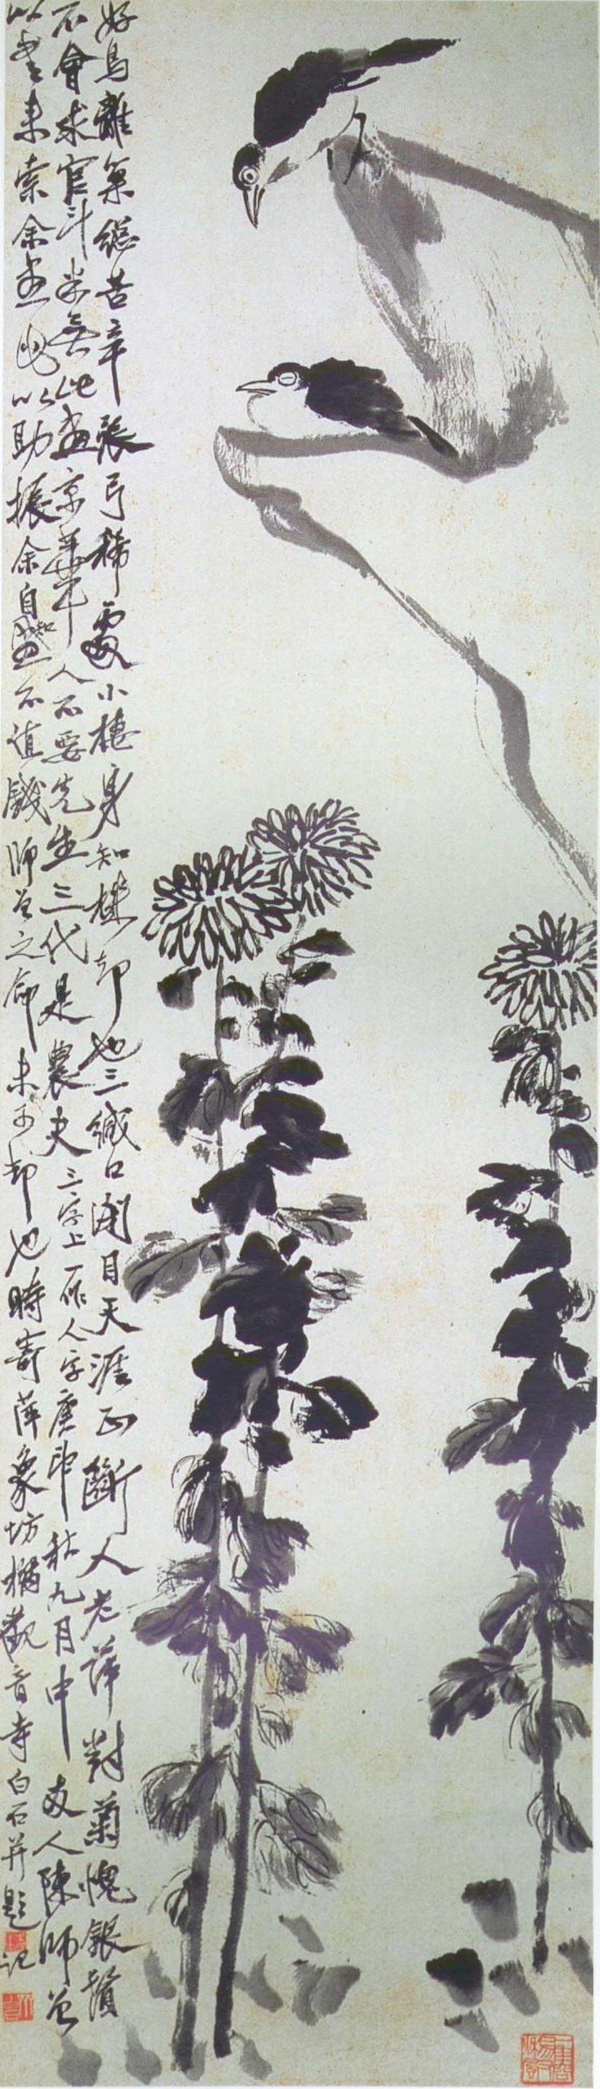 好鳥離巢總苦辛張弓稀處小棲身知機卻也三緘口閉目天涯正斷人老萍對菊愧銀鬚
不會求官斗米無此畫京華人不要先生三代是農夫三字上一作人字庚申秋九月中友人陳師曾
以書來索余畫以助振余自知畫不值錢師曾之命未可卻也時寄萍象坊橋觀音寺白石并題記